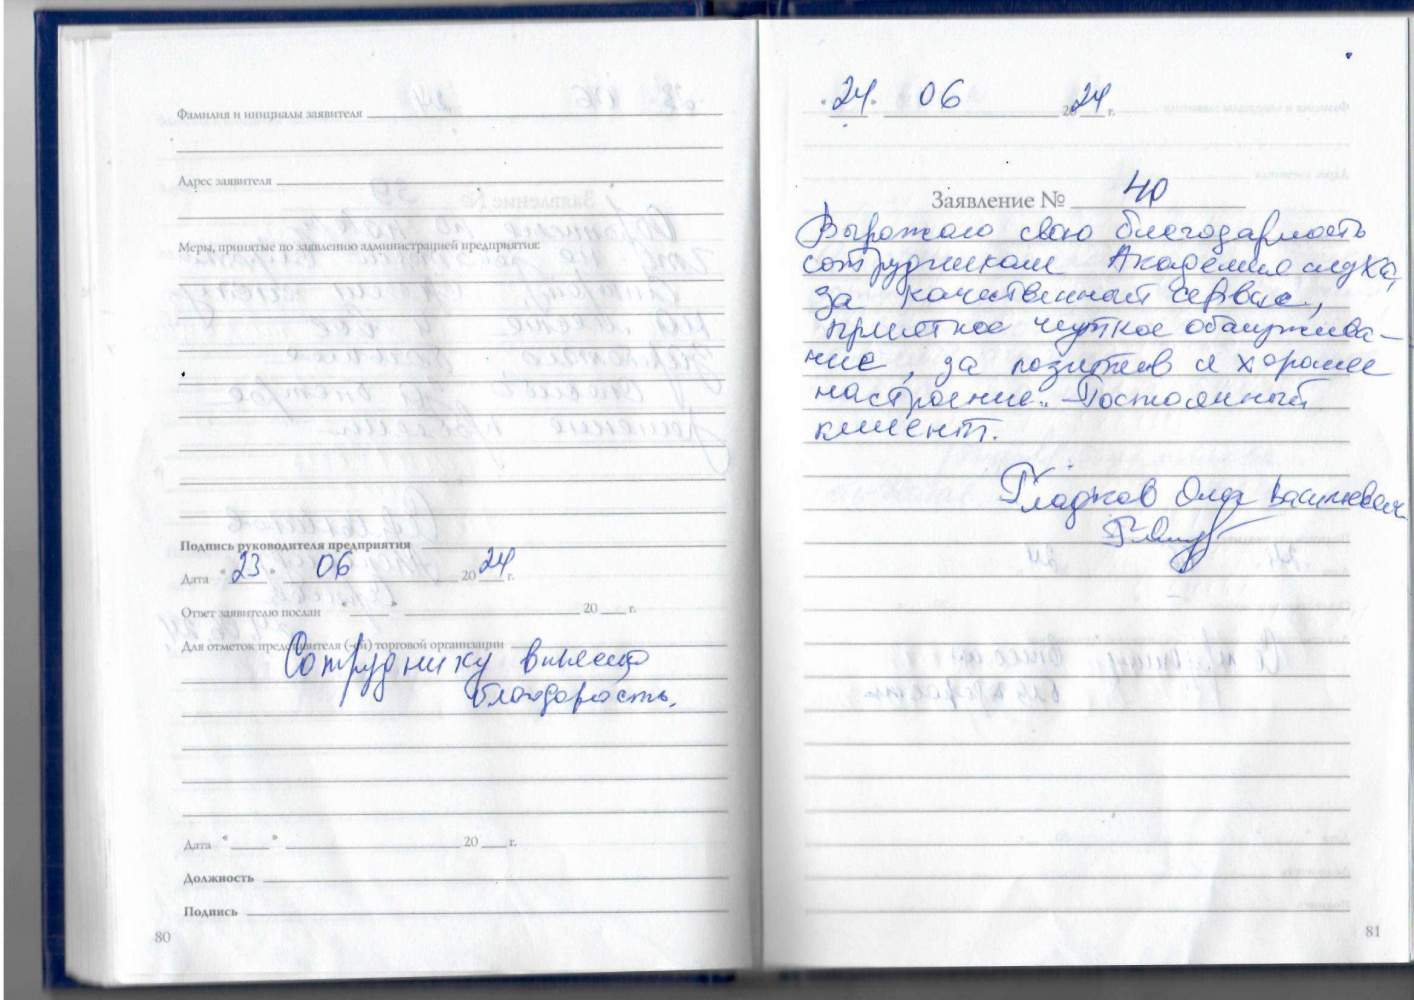 Фамилия и инициалы заявителя
Адрес заявителя
Меры, принятые по заявлению администрацией предприятия:
Подпись руководителя предприятия
Дата "23" 06 2024 г.
Ответ заявителю послан " " 20 г.
Для отметок представителя (-ей) торговой организации
Сотруднику
благодарость.
Дата " " 20 г.
Должность
Подпись
80
"24" 06 2024 г.
Заявление № 40
Выражаю свою благодарность
сотрудникам Академия слуха,
за качественный сервис,
приятное чуткое обслужива-
ние, за позитив и хорошее
настроение. Постоянный
клиент.
Гладков Олег Васильевич
81